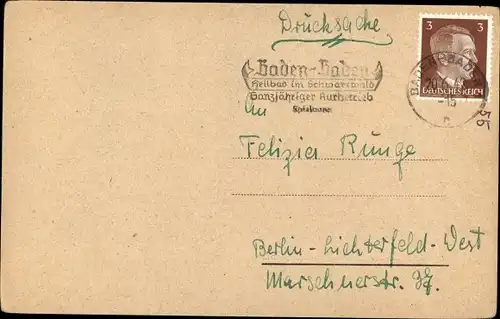 Drucksache
3 3
DEUTSCHES REICH
Baden-Baden
Heilbad im Schwarzwald
Ganzjähriger Kurbetrieb
BADEN-BADEN
-15
An
55
Felizia Runge
Berlin-Lichterfeld-West
Marschnerstr. 37.